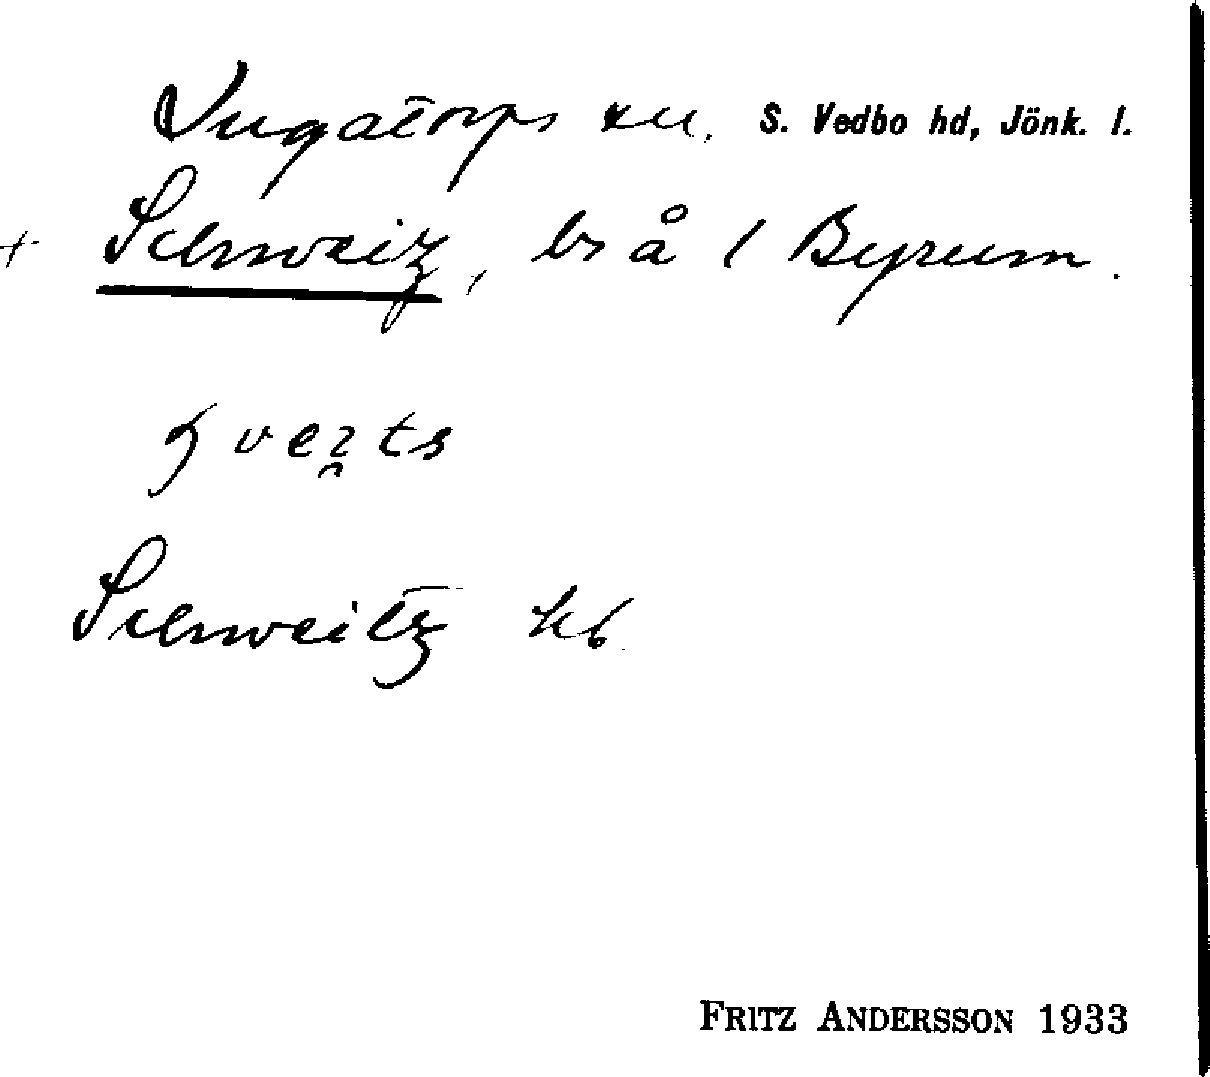 Ingatorps sn. S. Vedbo hd, Jönk. l.
+ Schweiz, bs å 1 Byrum.
ʃveits
Schweitz kb
FRITZ ANDERSSON 1933